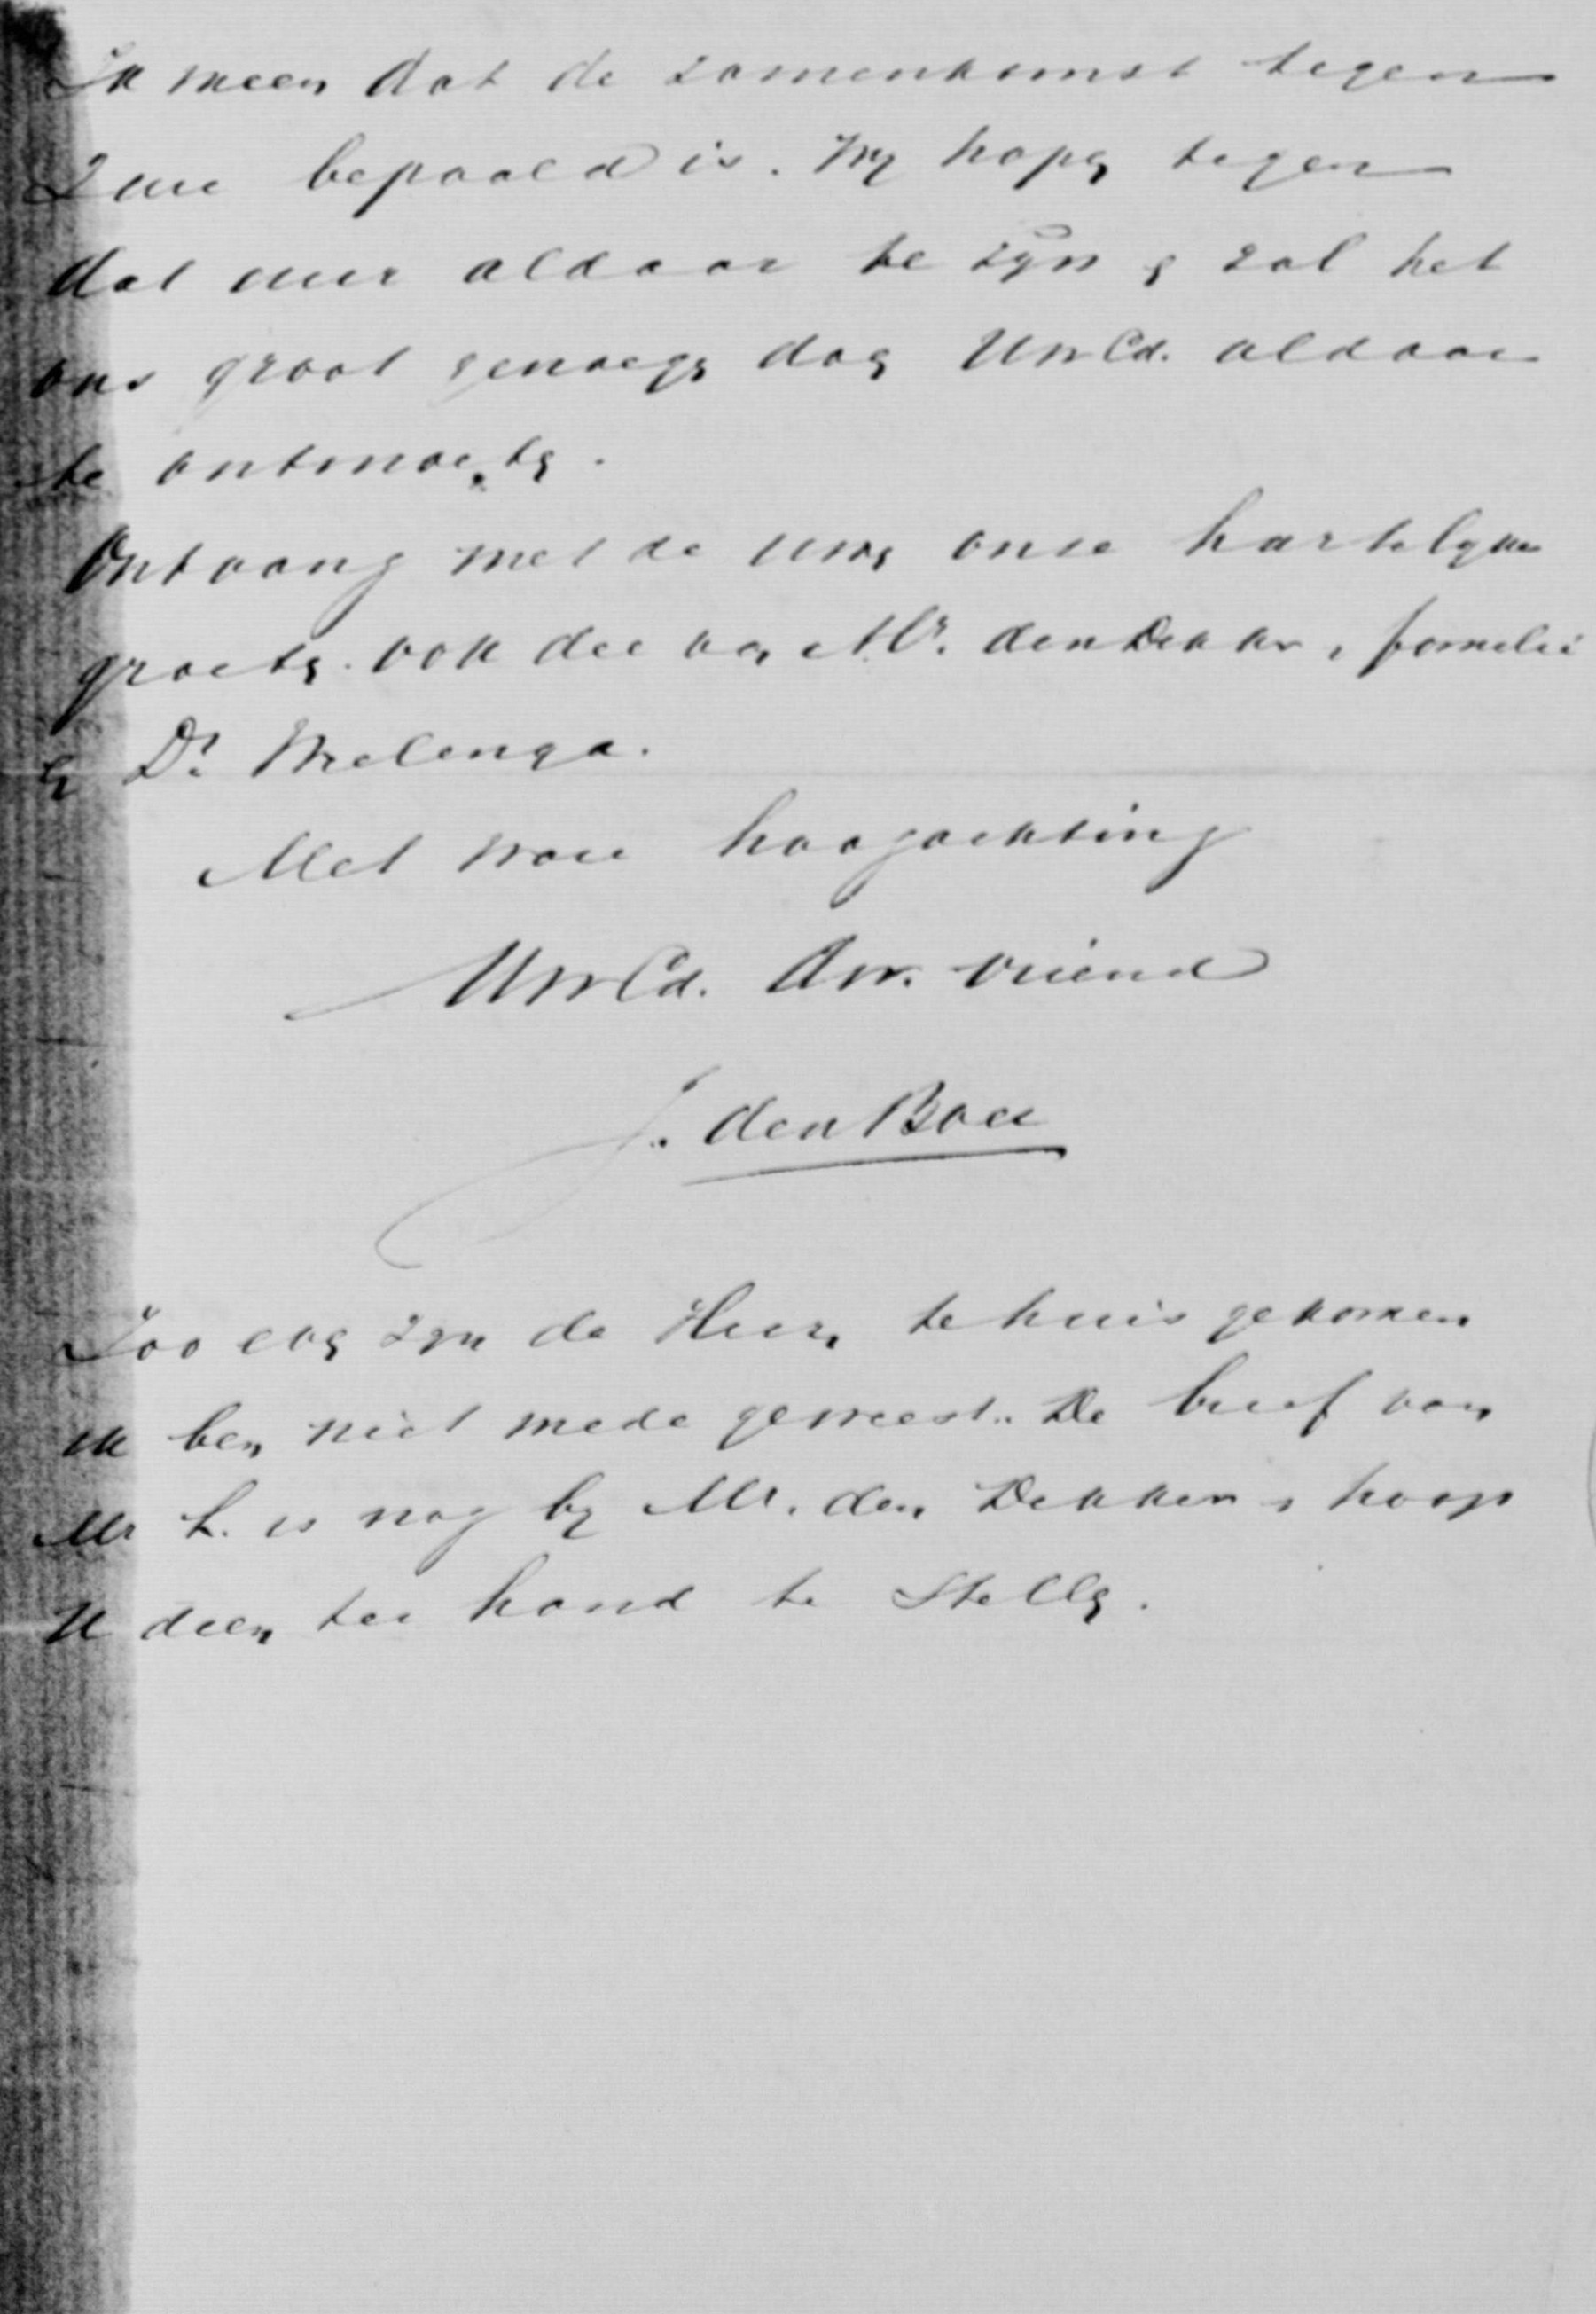 Ik meen dat de zamenkomst tegen
2 ure bepaald is. Wy hopen tegen
dat uur aldaar te zyn & zal het
ons groot genoegen doen UwEd. aldaar
te ontmoeten.
Ontvang met de uwen onse hartelyke
groeten ook die van Mr. den Dekker & familie
en Ds. Wielenga.
Met ware hoogachting
UwEd. dw. vriend
J. den Boer
Zoo even zyn de Heeren te huis gekomen
ik ben niet mede geweest. De brief van
Mr L. is nog by Mr. den Dekker & hoop
U dien ter hand te stellen.